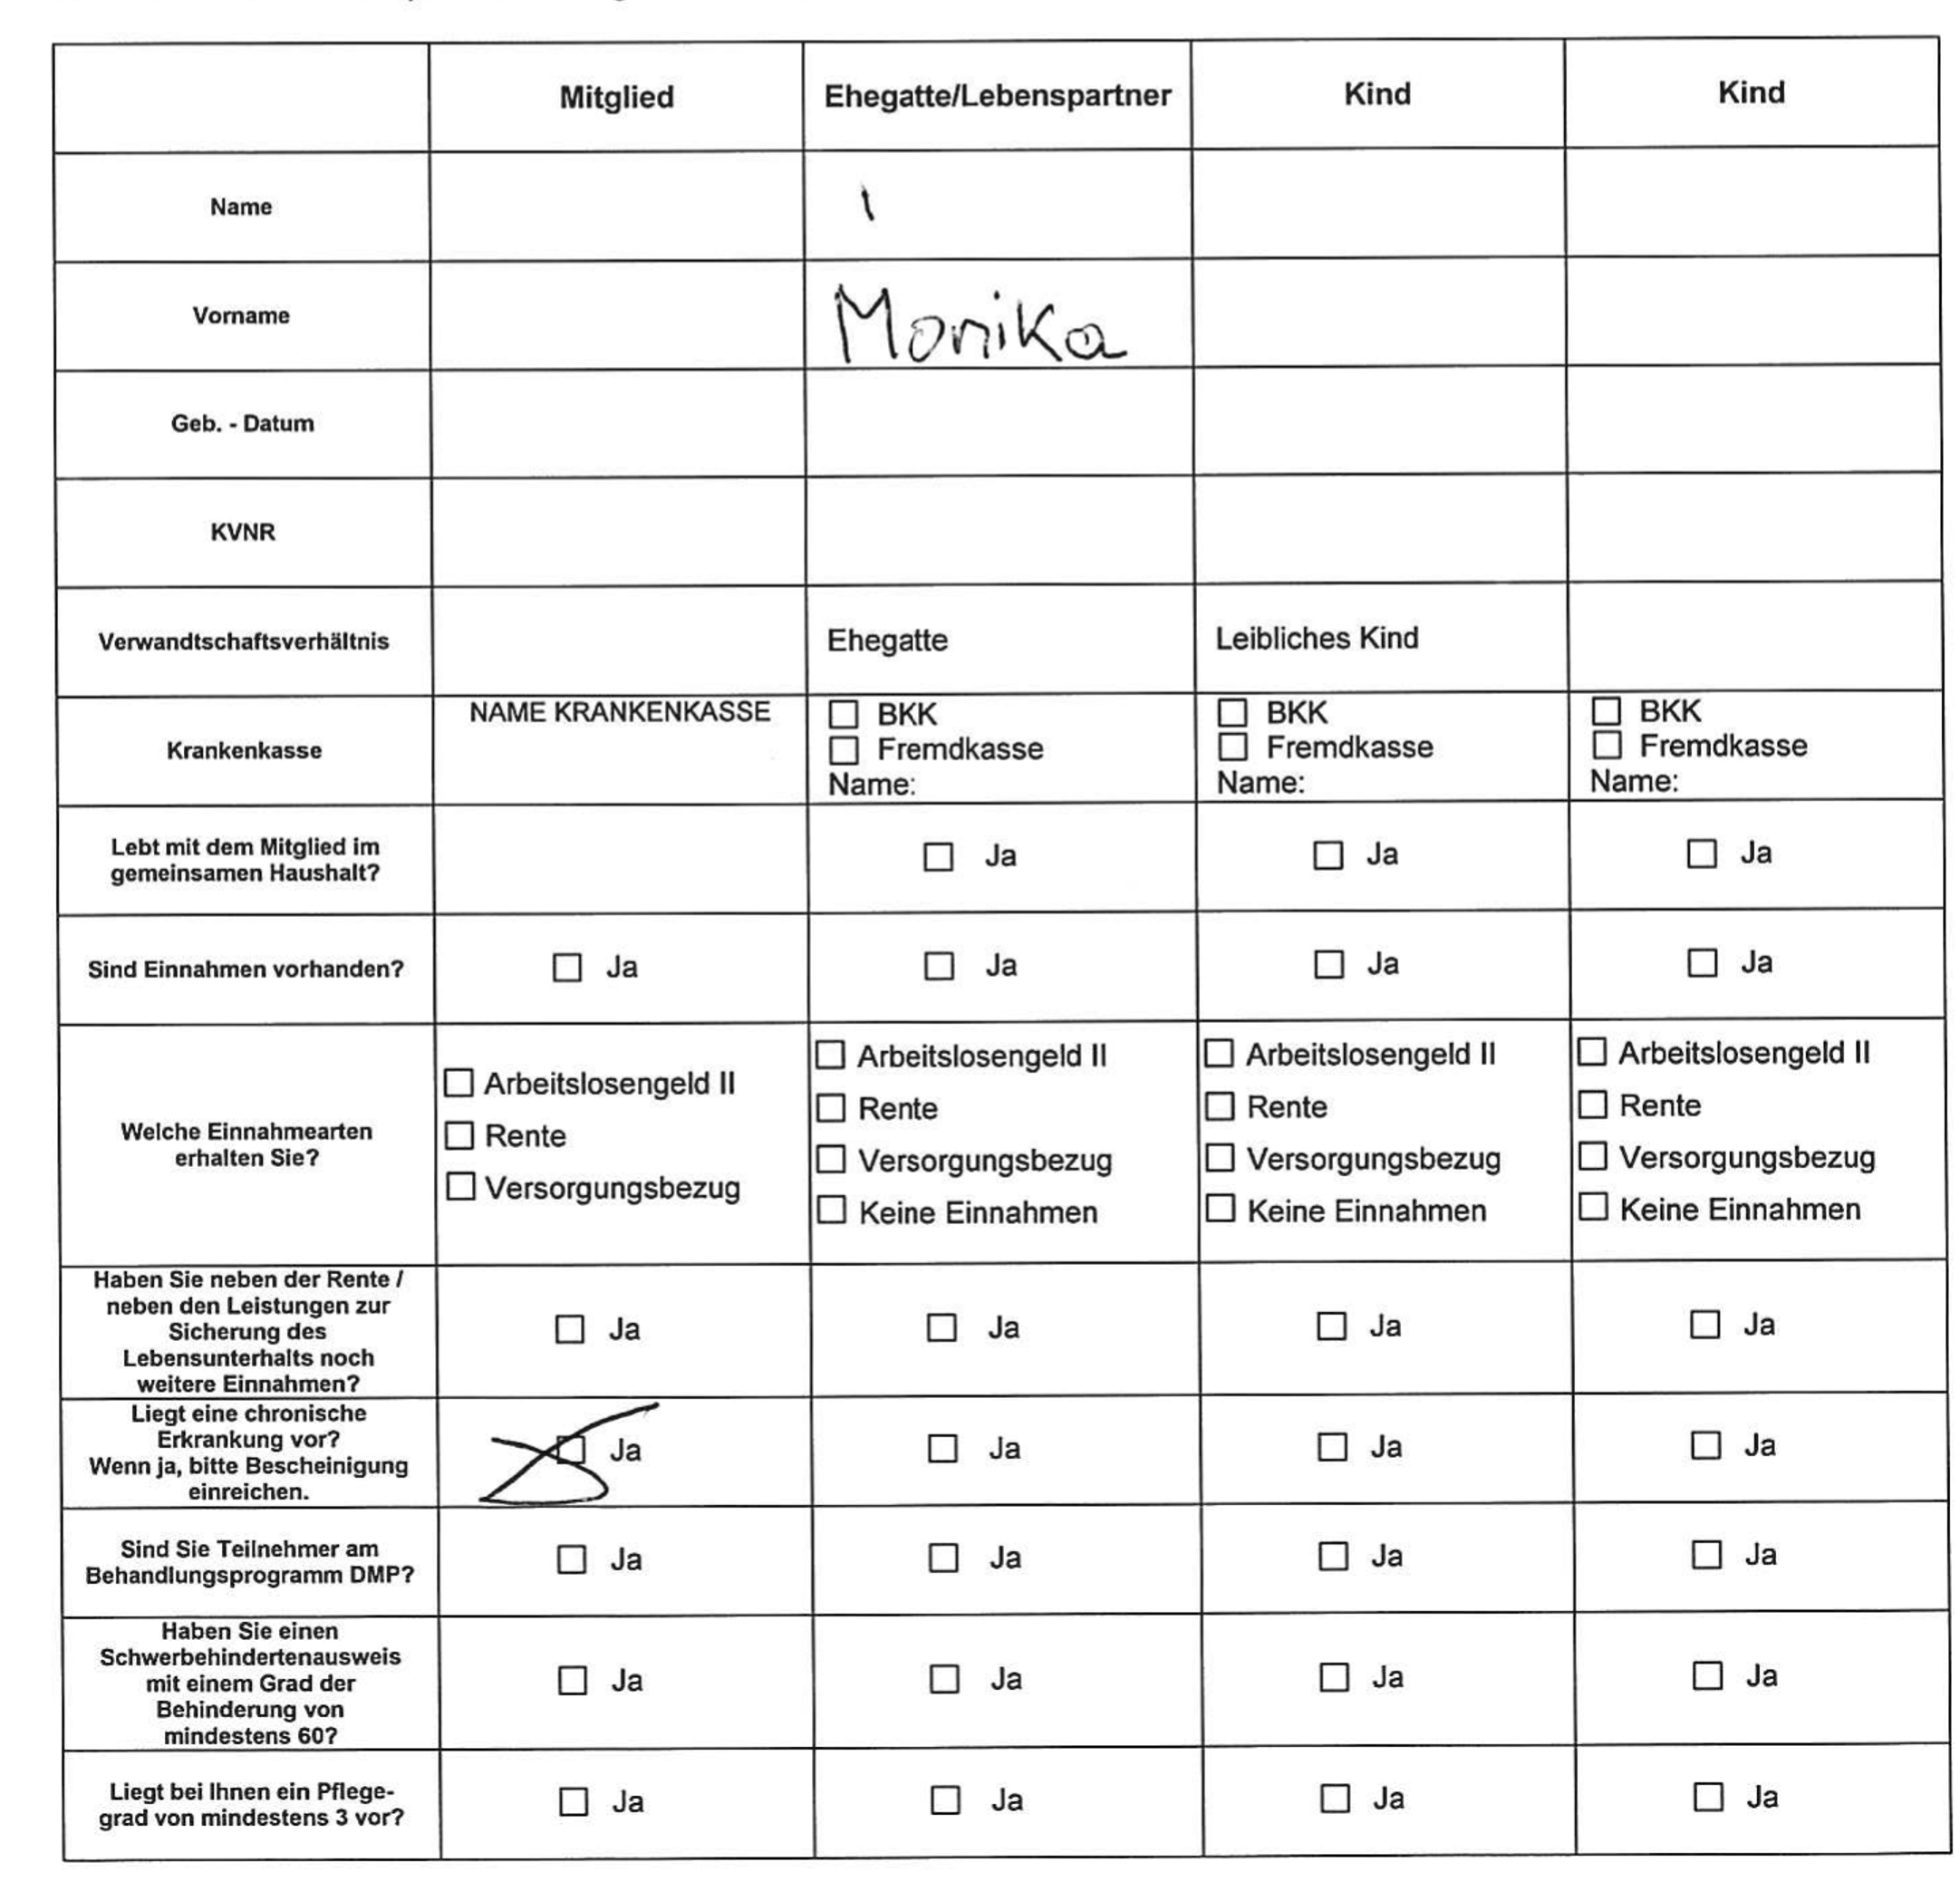 Mitglied Ehegatte/Lebenspartner Kind Kind
Name
Vorname Monika
Geb. - Datum
KVNR
Verwandtschaftsverhältnis Ehegatte Leibliches Kind
Krankenkasse NAME KRANKENKASSE
BKK
Fremdkasse
Name:
BKK
Fremdkasse
Name:
BKK
Fremdkasse
Name:
Lebt mit dem Mitglied im
gemeinsamen Haushalt?
Ja Ja Ja
Sind Einnahmen vorhanden? Ja Ja Ja Ja
Welche Einnahmearten
erhalten Sie?
Arbeitslosengeld II
Rente
Versorgungsbezug
Arbeitslosengeld II
Rente
Versorgungsbezug
Keine Einnahmen
Arbeitslosengeld II
Rente
Versorgungsbezug
Keine Einnahmen
Arbeitslosengeld II
Rente
Versorgungsbezug
Keine Einnahmen
Haben Sie neben der Rente /
neben den Leistungen zur
Sicherung des
Lebensunterhalts noch
weitere Einnahmen?
Ja Ja Ja Ja
Liegt eine chronische
Erkrankung vor?
Wenn ja, bitte Bescheinigung
einreichen.
Ja Ja Ja Ja
Sind Sie Teilnehmer am
Behandlungsprogramm DMP?
Ja Ja Ja Ja
Haben Sie einen
Schwerbehindertenausweis
mit einem Grad der
Behinderung von
mindestens 60?
Ja Ja Ja Ja
Liegt bei Ihnen ein Pflege-
grad von mindestens 3 vor?
Ja Ja Ja Ja